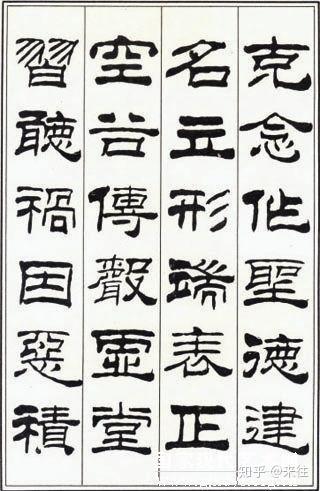 克念作聖德建
名立形端表正
空谷傳聲虛堂
習聽禍因惡積
知乎 @来往